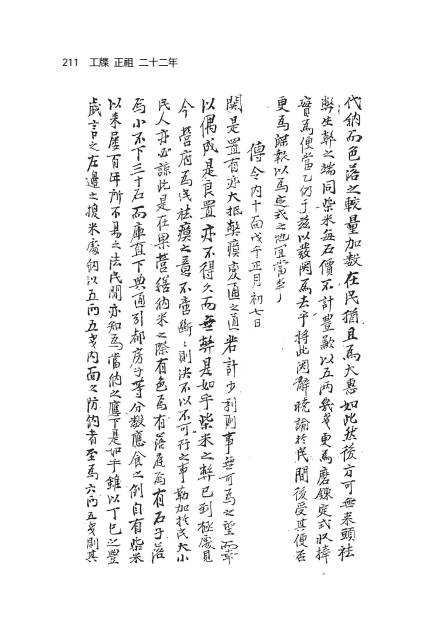 211 工牒 正祖 二十二年
代納而色落之較量加數在民猶且爲大惠如此然後方可無來頭祛
弊生弊之端同柴米每石價不計豊歉以五兩幾戔更爲磨鍊定式以捧
實爲便當乙仍于玆以發關爲去乎將此因辭曉諭於民間後受其便否
更爲牒報以爲定式之地宜當者
傳令內十面戊午正月初七日
關是置有亦大抵弊瘼變通之道若計少利則事無可爲之望而
以偶成是良置亦不得久而無弊是如乎柴米之弊已到極處見
今營府爲民祛瘼之意不啻斷斷則決不以不可行之事勒加於民大小
民人亦必諒此是在果營繕納米之際有色爲有落庭爲有石子落
爲小不下三十石而庫直下典通引都房子等分數應食之例自有柴米
以來屢百年所不易之法民間亦知爲當納之應下是如乎雖以丁巳之豊
歲言之左邊之搜米處納以五兩五戔內面之防納者至爲六兩五戔則其